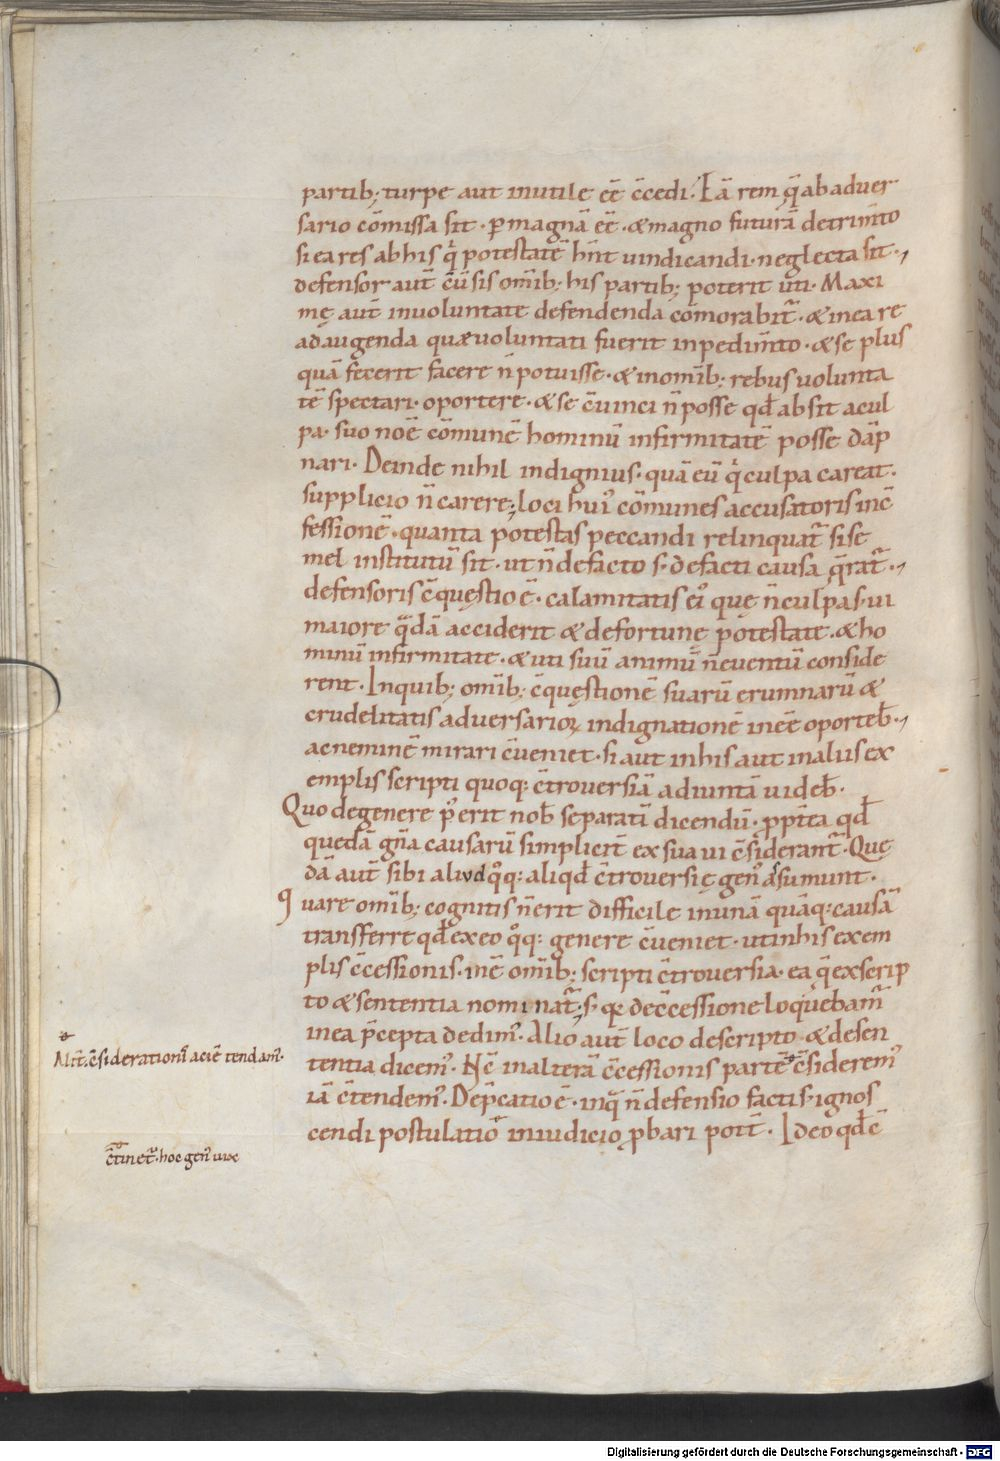 partib; turpe aut inutile eē c̄cedi. Eā rem q̄ ab aduer
sario cōmissa sit. ꝑmagnā eē. & magno futurā detrim̄to
si ea res ab his q̇ potestatē hn̄t uindicandi. neglecta sit.
defensor aut̄ cū sis om̄ib; his partib; poterit uti. Maxi
mę aut̄ in uoluntate defendenda cōmorabit̄. & in ea re
adaugenda quæ uoluntati fuerit inpedim̄to. & se plus
quā fecerit facere n̄ potuisse. & in om̄ib; rebus uolunta
tē spectari. oportere. & se c̄uinci n̄ posse qd̄ absit a cul
pa. suo noē cōmunē hominū infirmitatē posse dāp
nari. Deinde nihil indignius. quā eū q̇ culpa careat.
supplicio n̄ carere; loci hui᾽ cōmunes accusatoris in c̄
fessionē. quanta potestas peccandi relinquat̄ si se
mel institutū sit. ut n̄ de facto s; de facti causa q̄rat̄.
defensoris c̄quęstio ē. calamitatis ei᾽ quę n̄ culpa s; ui
maiore q̄dā acciderit & de fortunę potestate. & ho
minū infirmitate. & uti suū animū n̄ euentū conside
rent. In quib; om̄ib; c̄quęstionē suarū erumnarū &
crudelitatis aduersarioꝝ indignationē in eē oporteb̄.
ac neminē mirari c̄ueniet. si aut in his aut in aliis ex
emplis scripti quoq; c̄trouersiā adiuntā uideb̄.
Quo de genere p᾽ erit nob̄ separatī dicendū. ꝓpt̄ea qd̄
quedā gn̄a causarū simplicit̄ ex sua ui c̄siderant̄. Quę
dā aut̄ sibi aliud q᾽q; aliqd̄ c̄trouersię gen᾽ assumunt.
Quare om̄ib; cognitis n̄ erit difficile in unā quāq; causā
transferre qd̄ ex eo q᾽q; genere c̄ueniet. ut in his exem
plis c̄cessionis. in ē om̄ib; scripti c̄trouersia. ea q̄ ex scrip
to & sententia nominat̄; s; qꝛ de c̄cessione loquebam̄
in ea p̄cepta dedim᾽. Alio aut̄ loco de scripto & de sen
tentia dicem᾽. Nc̄ in alterā c̄cessionis partē c̄siderem᾽
iā c̄tendem᾽. Dep̄catio ē. in q̄ n̄ defensio facti s; ignos
cendi postulatio in iudicio ꝓbari pot̄. Ideo qd̄ ē
Alit̄. c̄siderationis aciē tendam᾽.
c̄tinet̄. hoc gen᾽ uix
Digitalisierung gefördert durch die Deutsche Forschungsgemeinschaft - DFG